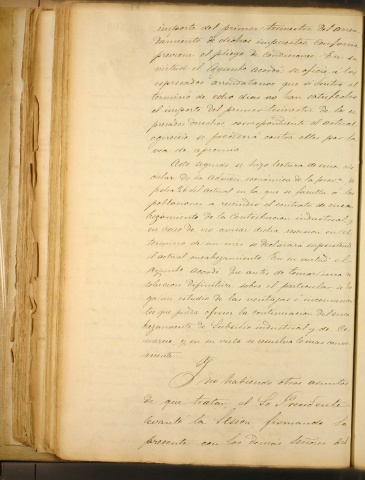 importe del primer trimestre del arren
damiento de dichos impuestos conforme
previene el pliego de condiciones. En su
virtud el Ayunto acordó se oficie a los
espresados arrendatarios que si dentro el
termino de ocho dias no han satisfecho
el importe del primer trimestre de los es
presados derechos correspondiente al actual
egercicio se procederá contra ellos por la
via de apremio.
Acto seguido se hizo lectura de una cir
cular de la Admon economica de la prova
fecha 26 del actual en la que se faculta a las
poblaciones a rescindir el contrato de enca
bezamiento de la Contribucion industrial, y
en caso de no avisar dicha rescision en el
termino de un mes se declarará subsistente
el actual encabezamiento. En su virtud el
Ayunto acordó que antes de tomar una re
solucion definitiva sobre el particular se ha
ga un estudio de las ventajas é inconvenien
tes que podia ofrecer la continuacion del enca
bezamiento de Subsidio industrial y de Co
mercio, y en su vista se resuelva lo mas conve
niente.
Y no habiendo otros asuntos
de que tratar, el Sr Presidente
levantó la Sesion, firmando la
presente con los demas Señores del